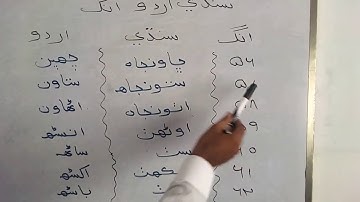 سنڌي اردو انگ
انگ سنڌي اردو
۵۶ ڇاونجاه چھپن
۵ ستونجاھ ستاون
۸ اٺونجاه اٹھاون
۹ اوڻھٺ انسٹھ
ساٹھ
۶۱ اکسٹھ
۶۲ باسٹھ